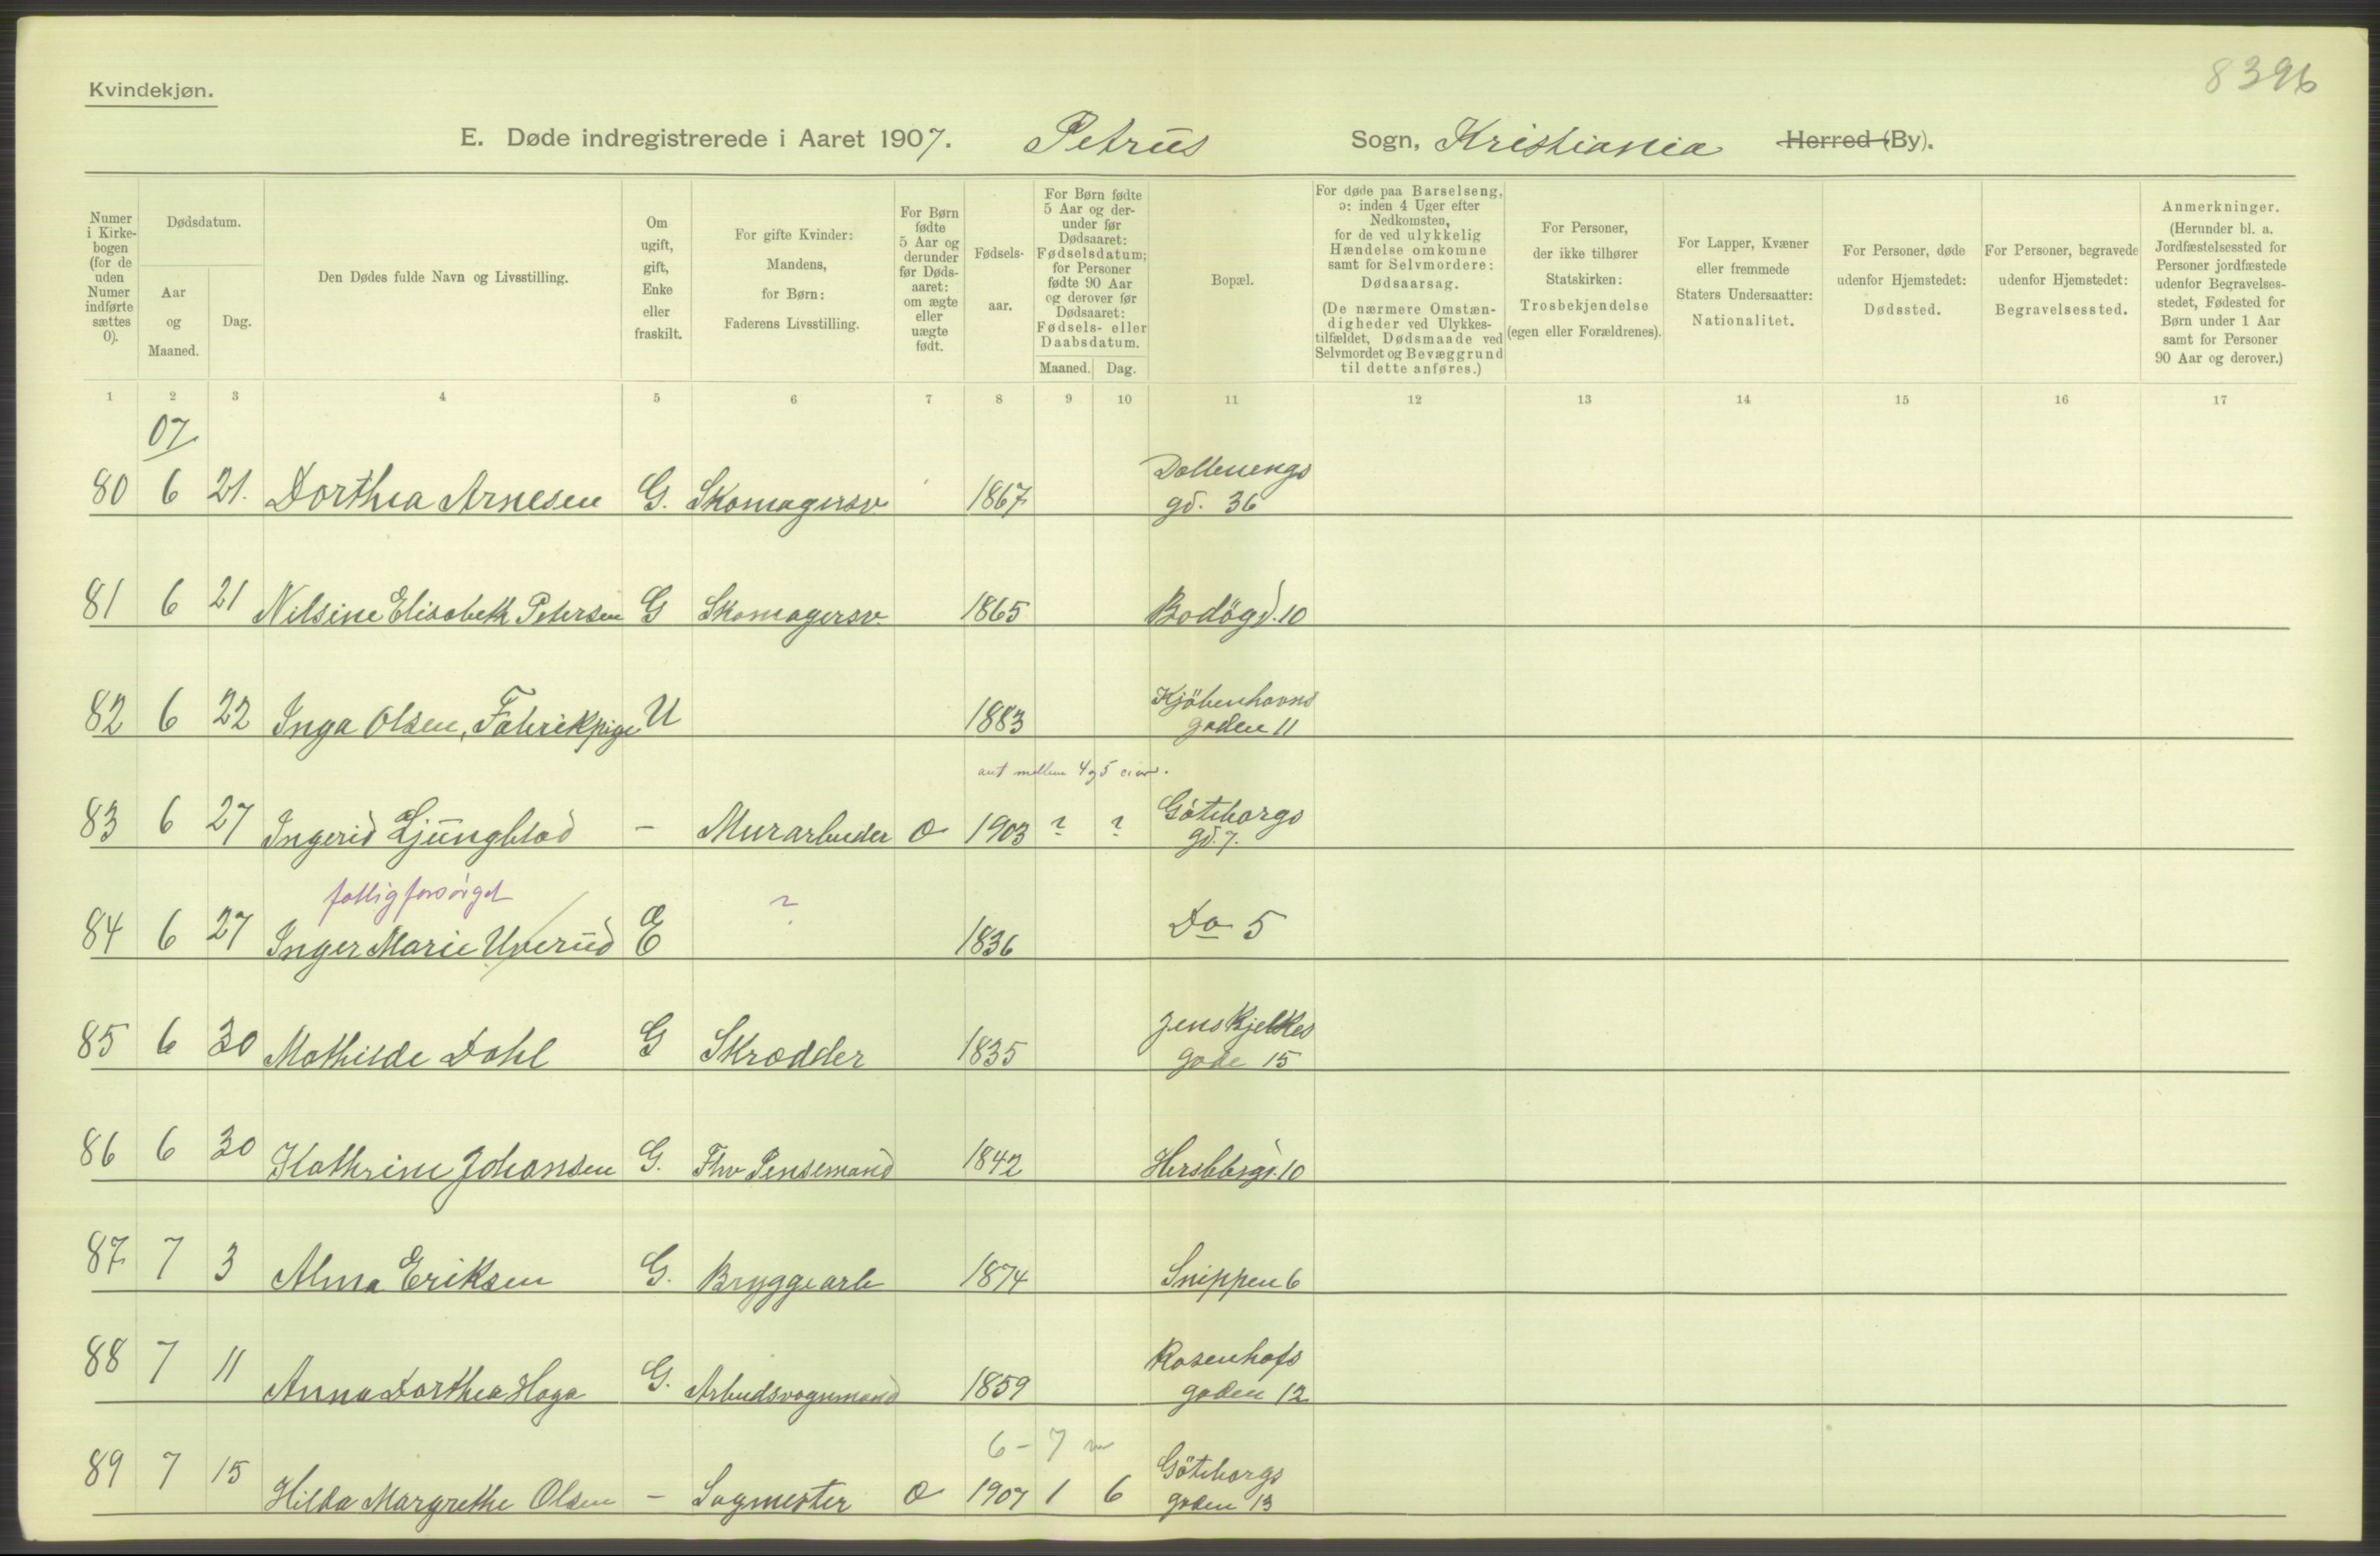 8396
Kvindekjøn.
E. Døde indregistrerede i Aaret 1907. Petrus Sogn, Kristiania Herred (By).
Numer i Kirkebogen (for de uden Numer indførte sættes 0).
Dødsdatum.
Aar og Maaned.
Dag.
Den Dødes fulde Navn og Livsstilling.
Om ugift, gift, Enke eller fraskilt.
For gifte Kvinder: Mandens, for Børn: Faderens Livsstilling.
For Børn fødte 5 Aar og derunder før Dødsaaret: om ægte eller uægte født.
Fødselsaar.
For Børn fødte 5 Aar og derunder før Dødsaaret: Fødselsdatum; for Personer fødte 90 Aar og derover før Dødsaaret: Fødsels- eller Daabsdatum.
Maaned. Dag.
Bopæl.
For døde paa Barselseng, ɔ: inden 4 Uger efter Nedkomsten, for de ved ulykkelig Hændelse omkomne samt for Selvmordere: Dødsaarsag.
(De nærmere Omstændigheder ved Ulykkestilfældet, Dødsmaade ved Selvmordet og Bevæggrund til dette anføres.)
For Personer, der ikke tilhører Statskirken: Trosbekjendelse (egen eller Forældrenes).
For Lapper, Kvæner eller fremmede Staters Undersaatter: Nationalitet.
For Personer, døde udenfor Hjemstedet: Dødssted.
For Personer, begravede udenfor Hjemstedet: Begravelsessted.
Anmerkninger. (Herunder bl. a. Jordfæstelsessted for Personer jordfæstede udenfor Begravelsesstedet, Fødested for Børn under 1 Aar samt for Personer 90 Aar og derover.)
1 2 3 4 5 6 7 8 9 10 11 12 13 14 15 16 17
07
80 6 21. Dorthea Arnesen G. Skomagersv 1867 Dællenengs
gd. 36
81 6 21 Nilsine Elisabeth Petersen G Skomagersv. 1865 Bodögd. 10
82 6 22 Inga Olsen, Fabrikpige U 1883 Kjöbenhavns
gaden 11
ant mellem 4 og 5 aar.
83 6 27 Ingerid Ljungblad - Murarbeider O 1903 ? ? Göteborgs
gd. 7.
fattigforsörget
84 6 27 Inger Marie Uverud E ? 1836 Do 5
85 6 30 Mathilde Dahl G Skrædder 1835 Jens Bjelkes
gade 15
86 6 30 Kathrine Johansen G. Fhv Pensemand 1842 Herslebsgd. 10
87 7 3 Alma Eriksen G. Bryggearb 1874 Snippen 6
88 7 11 Anna Dorthea Haga G. Arbeidsvognmand 1859 Rosenhofs
gaden 12
6 - 7 m
89 7 15 Hilda Margrethe Olsen - Sagmester O 1907 1 6 Göteborgs
gaden 13